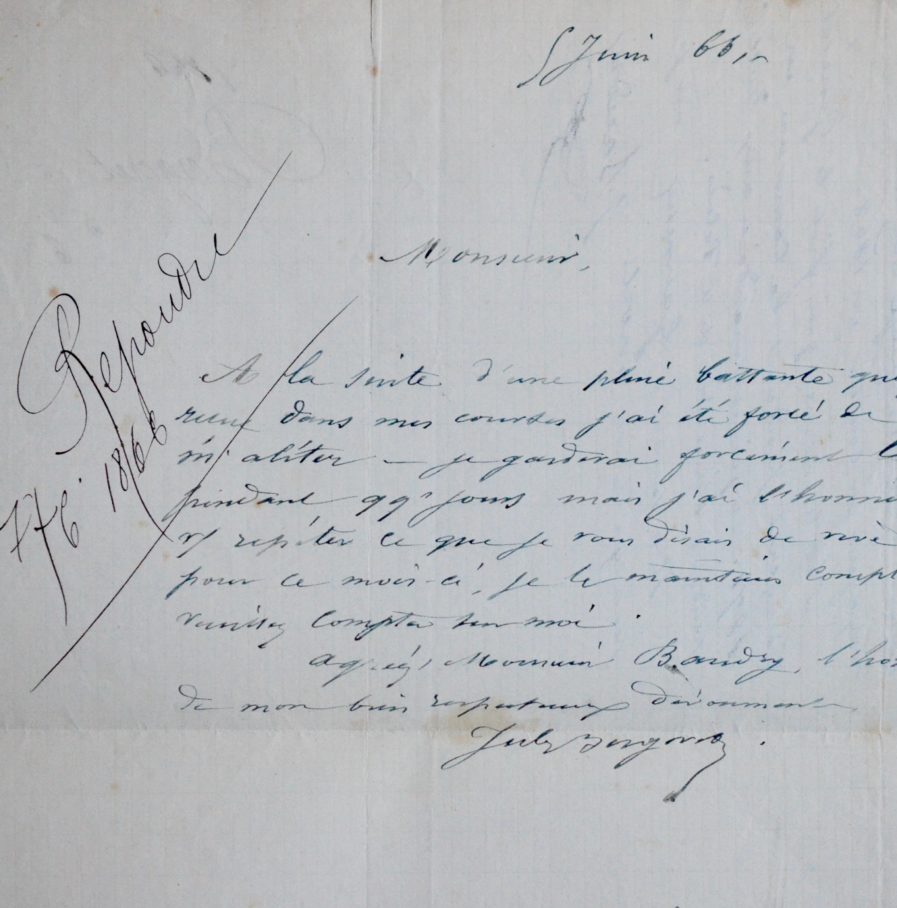 5 Juin 66
Monsieur,
A la suite d'une pluie battante que
reçue dans mes courses j'ai été forcé de
m'aliter — je garderai forcément l
pendant qqs jours mais j'ai l'honne
répéter ce que je vous disais de vive
pour ce mois-ci, je le maintiens compl
veuillez compter sur moi.
agréez, Monsieur Baudry, l'ho
de mon bien respectueux dévouement
Jules
Repondre
1866